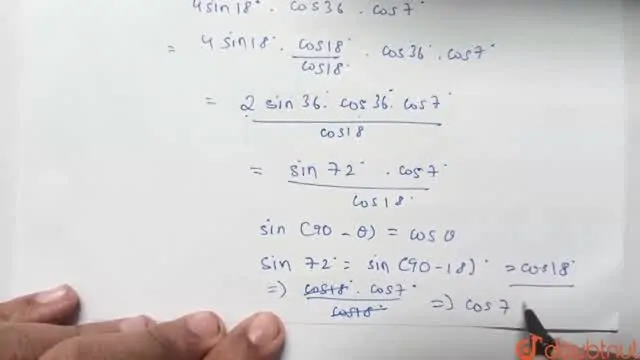 4 sin 18° . cos 36 . cos 7°
= 4 sin 18° . cos 18° / cos 18° . cos 36° . cos 7°
= 2 sin 36° . cos 36° . cos 7° / cos 18
= sin 72° . cos 7° / cos 18°
sin (90 - θ) = cos θ
sin 72° = sin (90 - 18)° = cos 18°
=) cos 18° . cos 7° / cos 18° =) cos 7